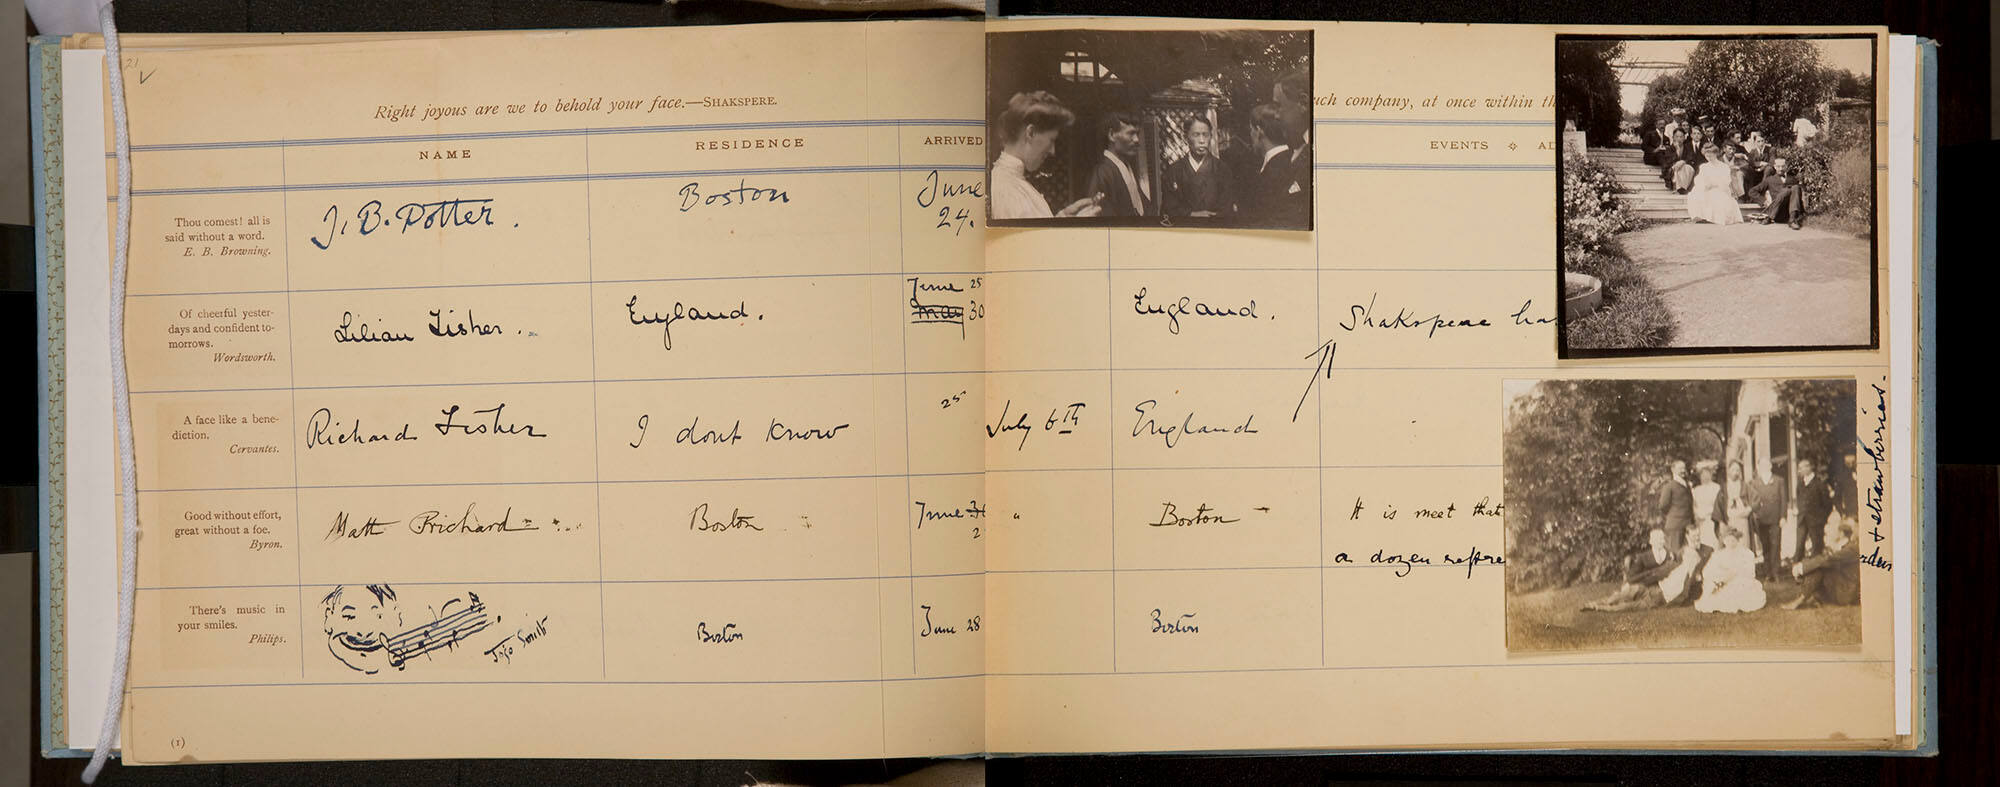 21
Right joyous are we to behold your face.—SHAKSPERE.
such company, at once within th
NAME RESIDENCE ARRIVED EVENTS AD
Thou comest! all is
said without a word.
E. B. Browning.
J. B. Potter. Boston June
24.
Of cheerful yester-
days and confident to-
morrows.
Wordsworth.
Lilian Fisher. England. June 25
May 30
England. Shakspeare ha
A face like a bene-
diction.
Cervantes.
Richard Fisher I dont know 25 July 6th England
Good without effort,
great without a foe.
Byron.
Matt Prichard Boston June 30
2
" Boston It is meet that
a dozen refre
rders
+ strawberries.
There's music in
your smiles.
Philips.
JoJo Smith Boston June 28 Boston
(1)